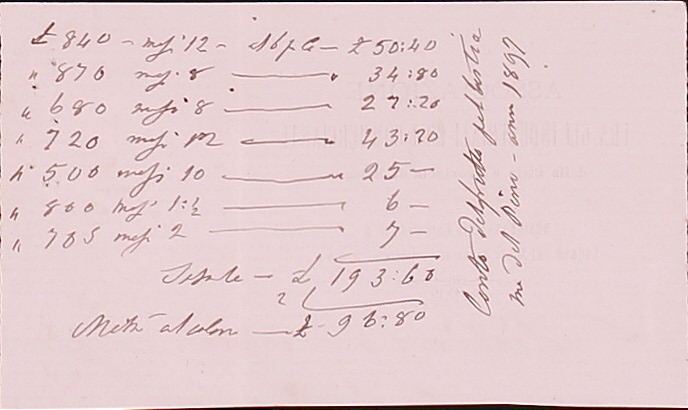 £ 840 - mesi 12 - Al 6 p C - £ 50:40
" 870 mesi 8 — 34:80
" 680 mesi 8 — 27:20
" 720 mesi 12 — 43:20
" 500 mesi 10 — 25 —
" 800 mesi 1:½ — 6 —
" 705 mesi 2 — 7 —
Totale — £ 193:60
2
Metà al colono — £ 96:80
Conto del frutto pel bestia
me del - anno 1897